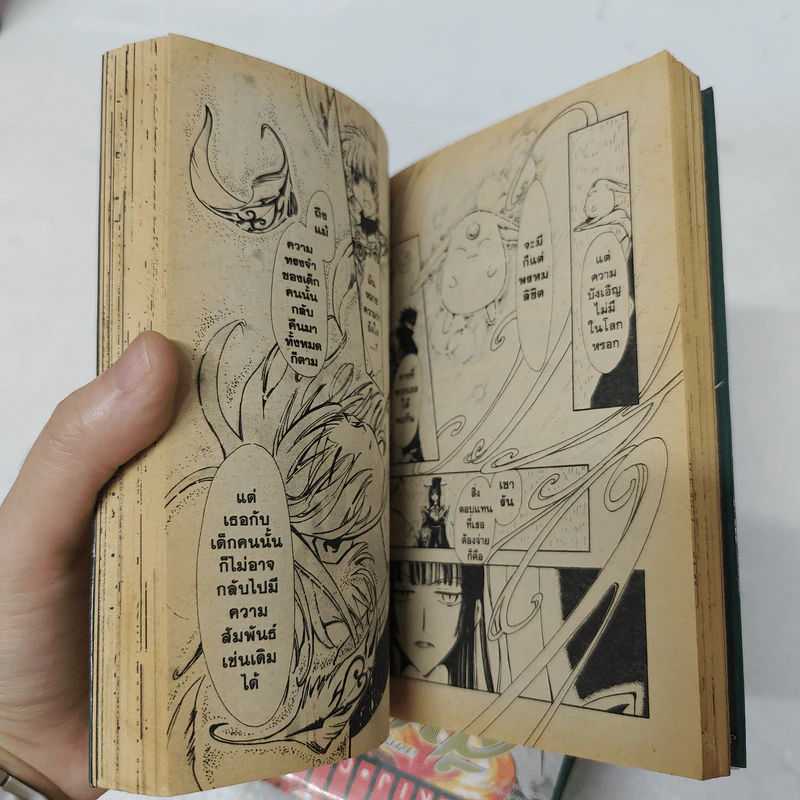 แต่
ความ
บังเอิญ
ไม่มี
ในโลก
หรอก
จะมี
ก็แต่
พรหม
ลิขิต
เชา
รัน
สิ่ง
ตอบแทน
ที่เธอ
ต้องจ่าย
ก็คือ
ถึง
แม้
ความ
ทรงจำ
ของเด็ก
คนนั้น
กลับ
คืนมา
ทั้งหมด
ก็ตาม
แต่
เธอกับ
เด็กคนนั้น
ก็ไม่อาจ
กลับไปมี
ความ
สัมพันธ์
เช่นเดิม
ได้